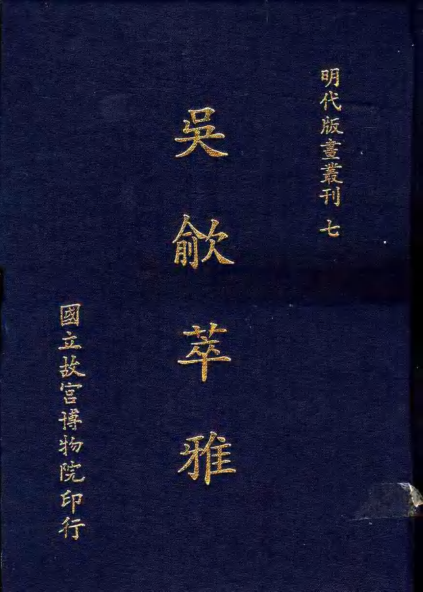 明代版畫叢刊 七
吳歈萃雅
國立故宮博物院印行